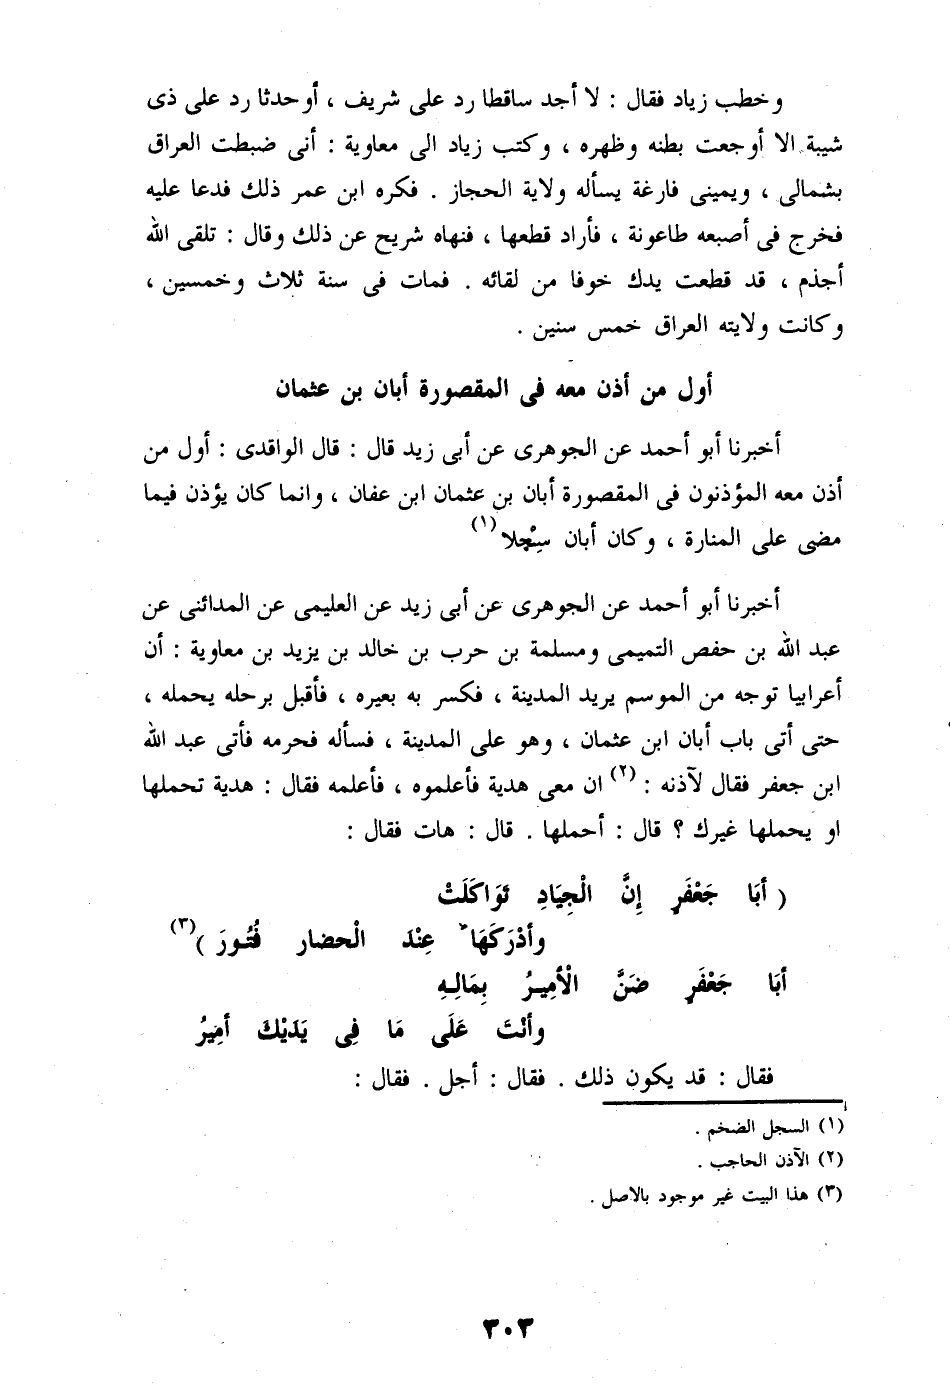 وخطب زياد فقال : لا أجد ساقطا رد على شريف ، أو حدثا رد على ذى
شيبة الا أوجعت بطنه وظهره ، وكتب زياد الى معاوية : أنى ضبطت العراق
بشمالى ، ويمينى فارغة يسأله ولاية الحجاز . فكره ابن عمر ذلك فدعا عليه
فخرج فى أصبعه طاعونة ، فأراد قطعها ، فنهاه شريح عن ذلك وقال : تلقى الله
أجذم ، قد قطعت يدك خوفا من لقائه . فمات فى سنة ثلاث وخمسين ،
وكانت ولايته العراق خمس سنين .
أول من أذن معه فى المقصورة أبان بن عثمان
أخبرنا أبو أحمد عن الجوهرى عن أبى زيد قال : قال الواقدى : أول من
أذن معه المؤذنون فى المقصورة أبان بن عثمان ابن عفان ، وانما كان يؤذن فيما
مضى على المنارة ، وكان أبان سِبْحلا (١)
أخبرنا أبو أحمد عن الجوهرى عن أبى زيد عن العليمى عن المدائنى عن
عبد الله بن حفص التميمى ومسلمة بن حرب بن خالد بن يزيد بن معاوية : أن
أعرابيا توجه من الموسم يريد المدينة ، فكسر به بعيره ، فأقبل برحله يحمله ،
حتى أتى باب أبان ابن عثمان ، وهو على المدينة ، فسأله فحرمه فأتى عبد الله
ابن جعفر فقال لآذنه : (٢) ان معى هدية فأعلموه ، فأعلمه فقال : هدية تحملها
او يحملها غيرك ؟ قال : أحملها . قال : هات فقال :
( أبَا جَعْفَرٍ إِنَّ الْجِيَادِ تَوَاكَلَتْ
وأدْرَكَهَا عِنْدَ الْحضار فُتُورَ ) (٣)
أبَا جَعْفَرٍ ضَنَّ الْأمِيرُ بِمَالِهِ
وأنْتَ عَلَى مَا فِى يَدَيْكَ أمِيرُ
فقال : قد يكون ذلك . فقال : أجل . فقال :
(١) السجل الضخم .
(٢) الآذن الحاجب .
(٣) هذا البيت غير موجود بالاصل .
٣٠٣